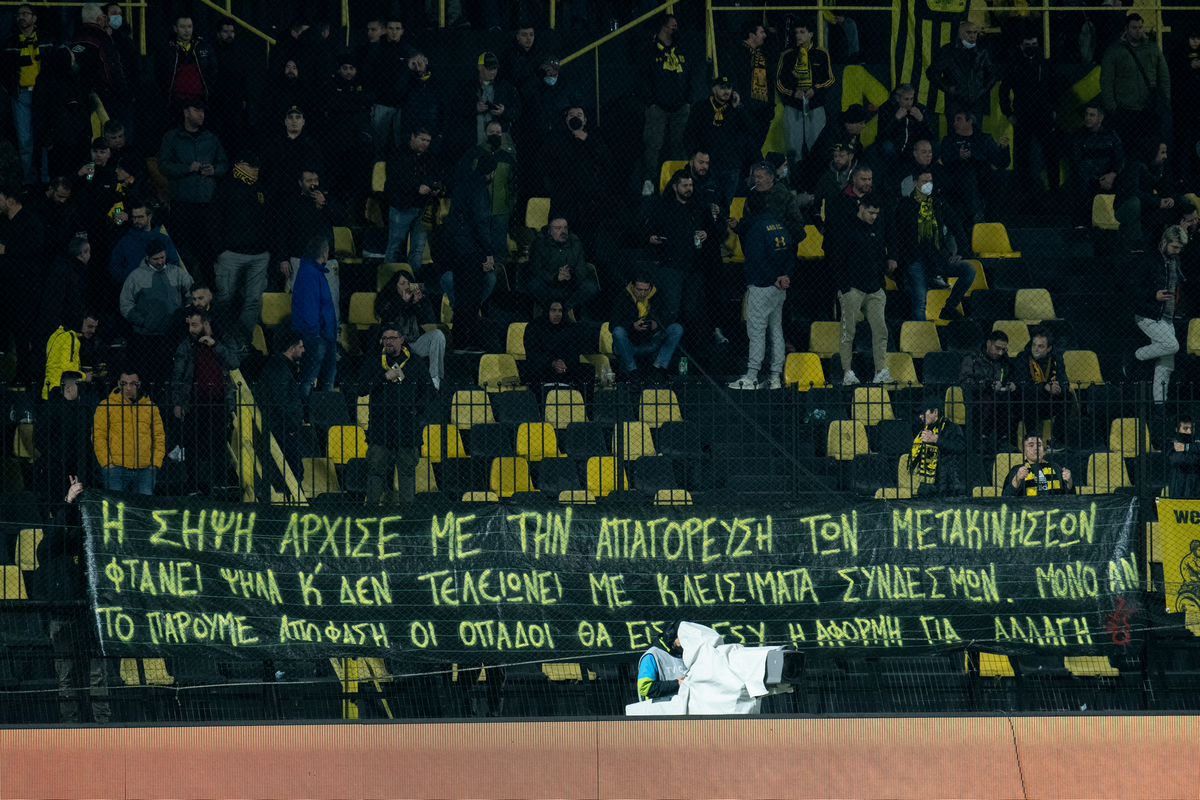 Η ΣΗΨΗ ΑΡΧΙΣΕ ΜΕ ΤΗΝ ΑΠΑΓΟΡΕΥΣΗ ΤΩΝ ΜΕΤΑΚΙΝΗΣΕΩΝ
ΦΤΑΝΕΙ ΨΗΛΑ Κ' ΔΕΝ ΤΕΛΕΙΩΝΕΙ ΜΕ ΚΛΕΙΣΙΜΑΤΑ ΣΥΝΔΕΣΜΩΝ. ΜΟΝΟ ΑΝ
ΤΟ ΠΑΡΟΥΜΕ ΑΠΟΦΑΣΗ ΟΙ ΟΠΑΔΟΙ ΘΑ Η ΑΦΟΡΜΗ ΓΙΑ ΑΛΛΑΓΗ
we